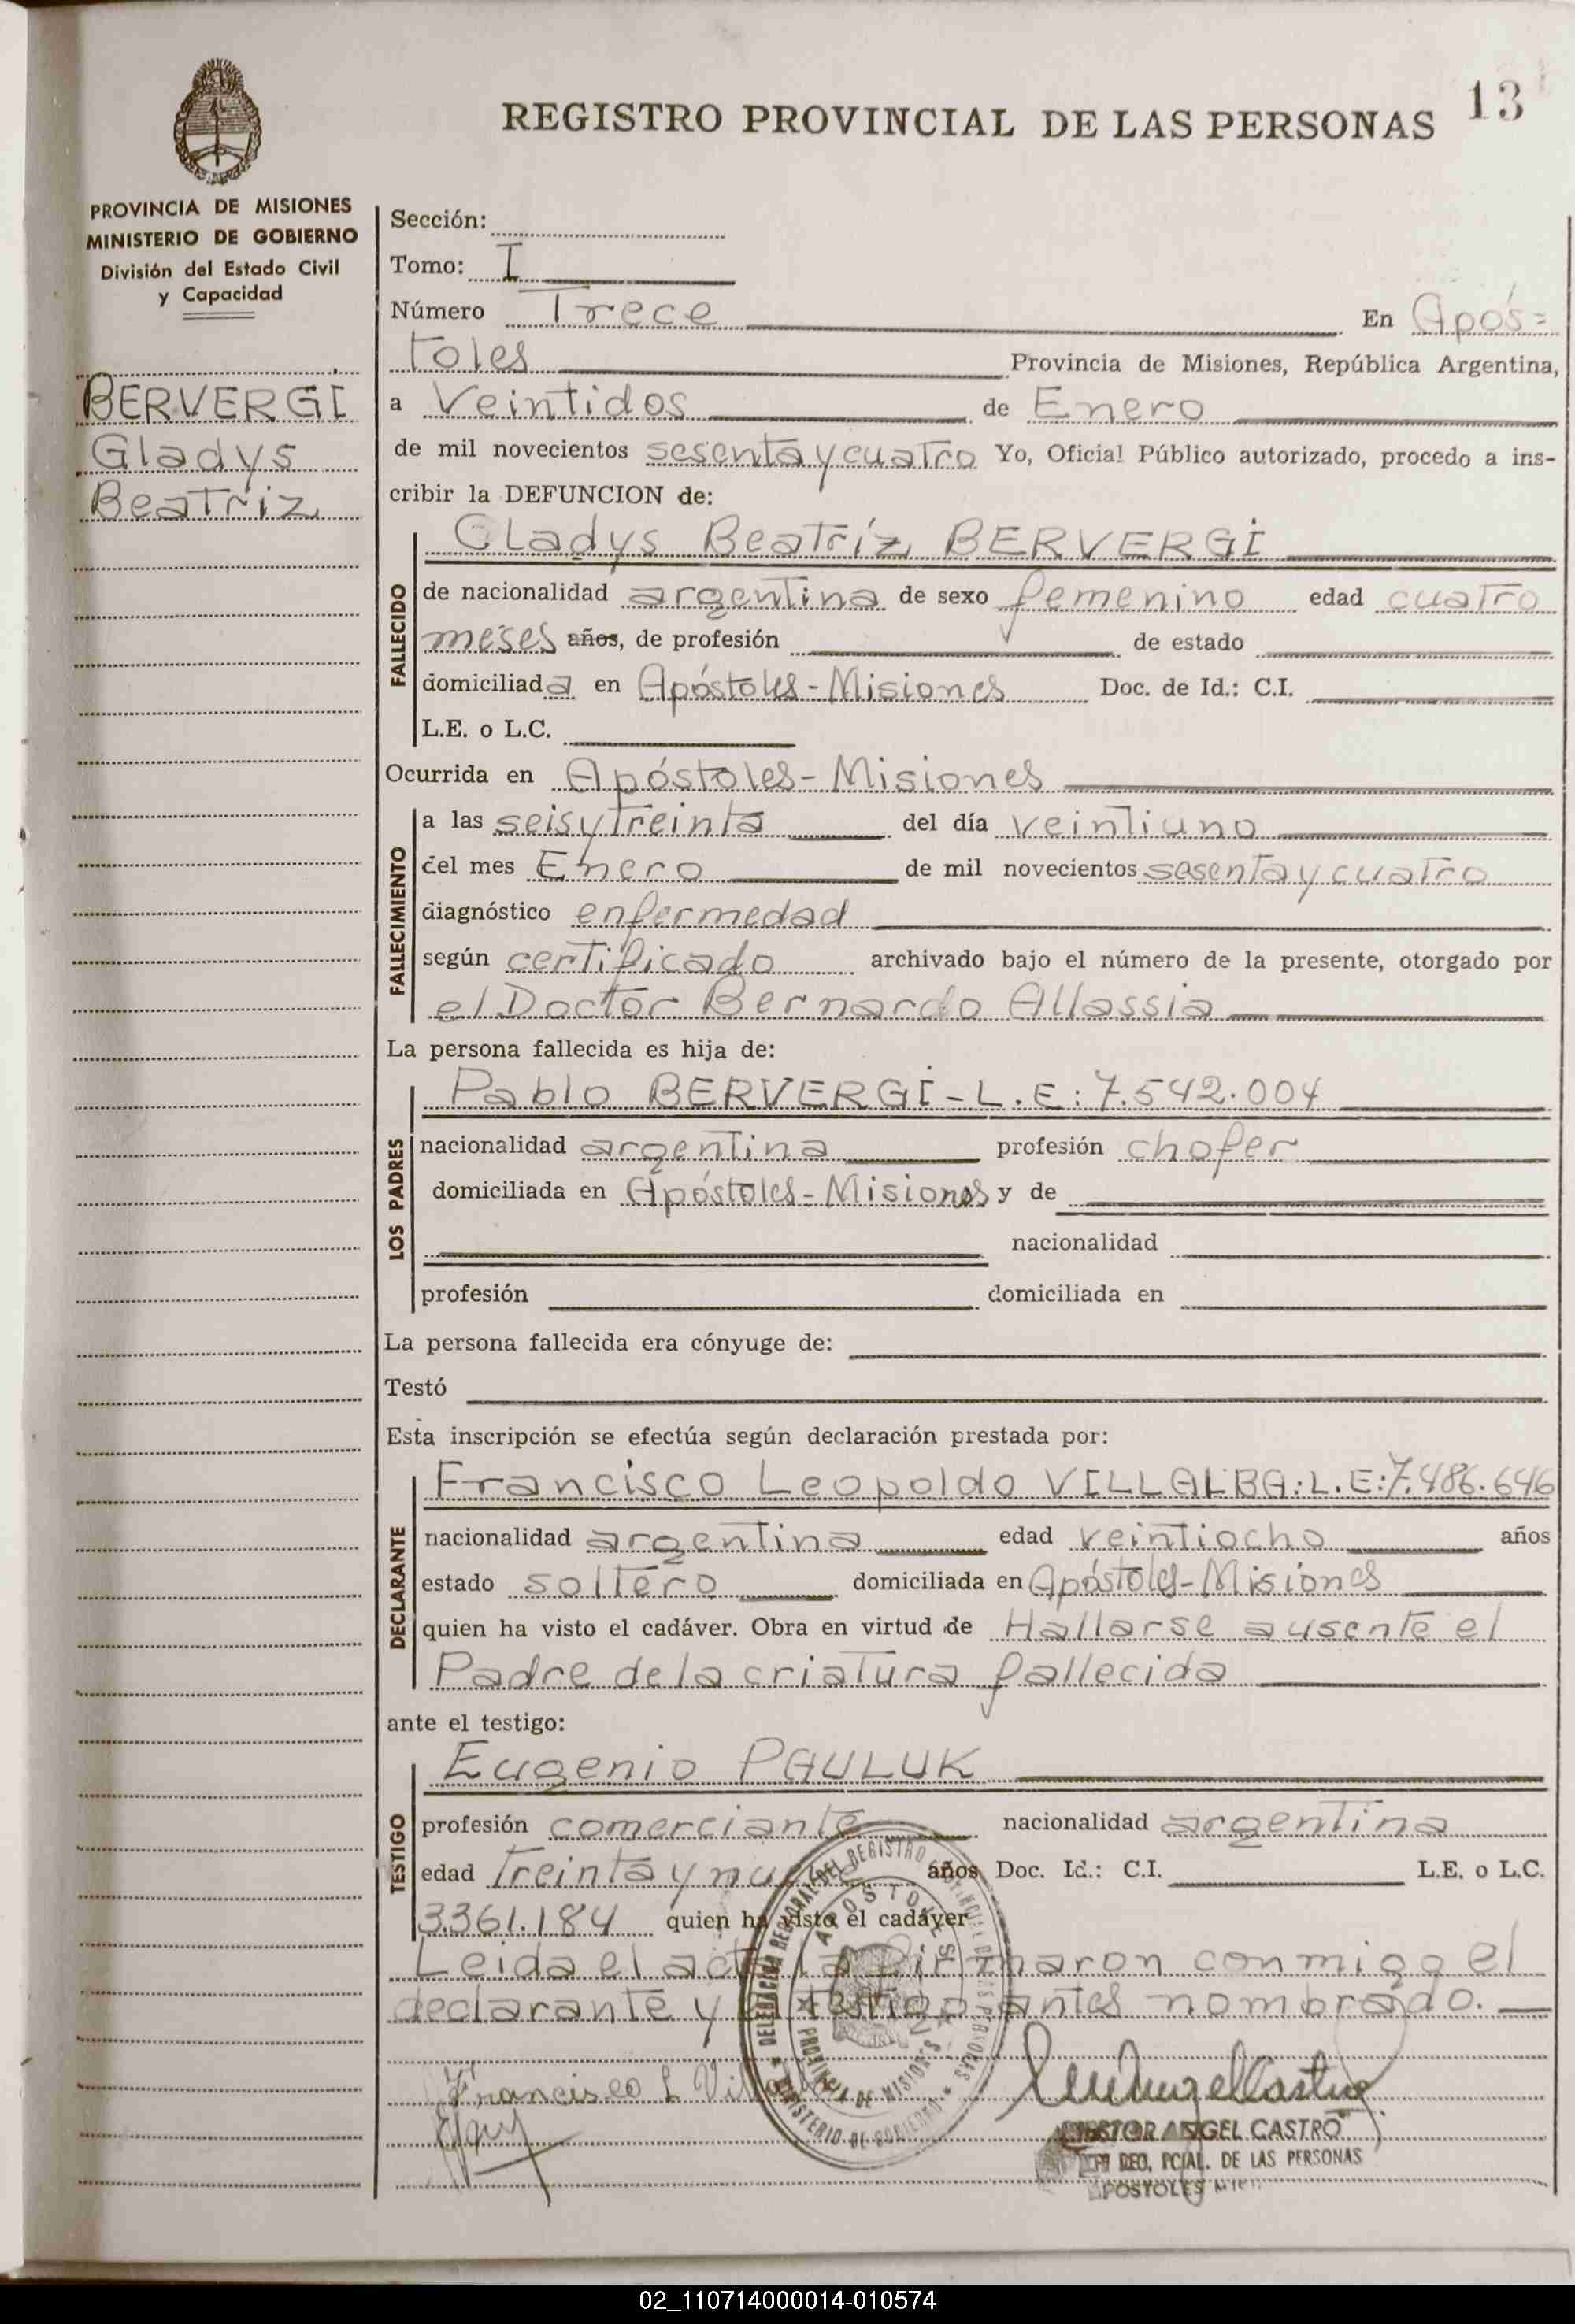 REGISTRO PROVINCIAL DE LAS PERSONAS 13
PROVINCIA DE MISIONES
MINISTERIO DE GOBIERNO
División del Estado Civil
y Capacidad
BERVERGI
Gladys
Beatriz
Sección:
Tomo: I
Número Trece En Após=
toles Provincia de Misiones, República Argentina,
a Veintidos de Enero
de mil novecientos sesenta y cuatro Yo, Oficial Público autorizado, procedo a ins-
cribir la DEFUNCION de:
Gladys Beatríz BERVERGI
FALLECIDO
de nacionalidad argentina de sexo femenino edad cuatro
meses años, de profesión de estado
domiciliada en Apóstoles-Misiones Doc. de Id.: C.I.
L.E. o L.C.
Ocurrida en Apóstoles-Misiones
FALLECIMIENTO
a las seis y treinta del día veintiuno
del mes Enero de mil novecientos sesenta y cuatro
diagnóstico enfermedad
según certificado archivado bajo el número de la presente, otorgado por
el Doctor Bernardo Allassia
La persona fallecida es hija de:
Pablo BERVERGI-L.E:7.542.004
LOS PADRES
nacionalidad argentina profesión chofer
domiciliada en Apóstoles-Misiones y de
nacionalidad
profesión domiciliada en
La persona fallecida era cónyuge de:
Testó
Esta inscripción se efectúa según declaración prestada por:
Francisco Leopoldo VILLALBA:L.E:7.486.646
DECLARANTE
nacionalidad argentina edad veintiocho años
estado soltero domiciliada en Apóstoles-Misiones
quien ha visto el cadáver. Obra en virtud de Hallarse ausente el
Padre de la criatura fallecida
ante el testigo:
Eugenio PAULUK
TESTIGO
profesión comerciante nacionalidad argentina
edad treinta y años Doc. Id.: C.I. L.E. o L.C.
3.361.184 quien ha visto el cadáver
Leida el acta la firmaron conmigo el
declarante y el testigo antes nombrado.
DELEGACION REGIONAL DEL REGISTRO PROVINCIAL DE LAS PERSONAS
APOSTOLES
PROVINCIA DE MISIONES
MINISTERIO DE GOBIERNO
Francisco L Villalba
NESTOR ANGEL CASTRO
REG. PCIAL. DE LAS PERSONAS
APOSTOLES
02_110714000014-010574